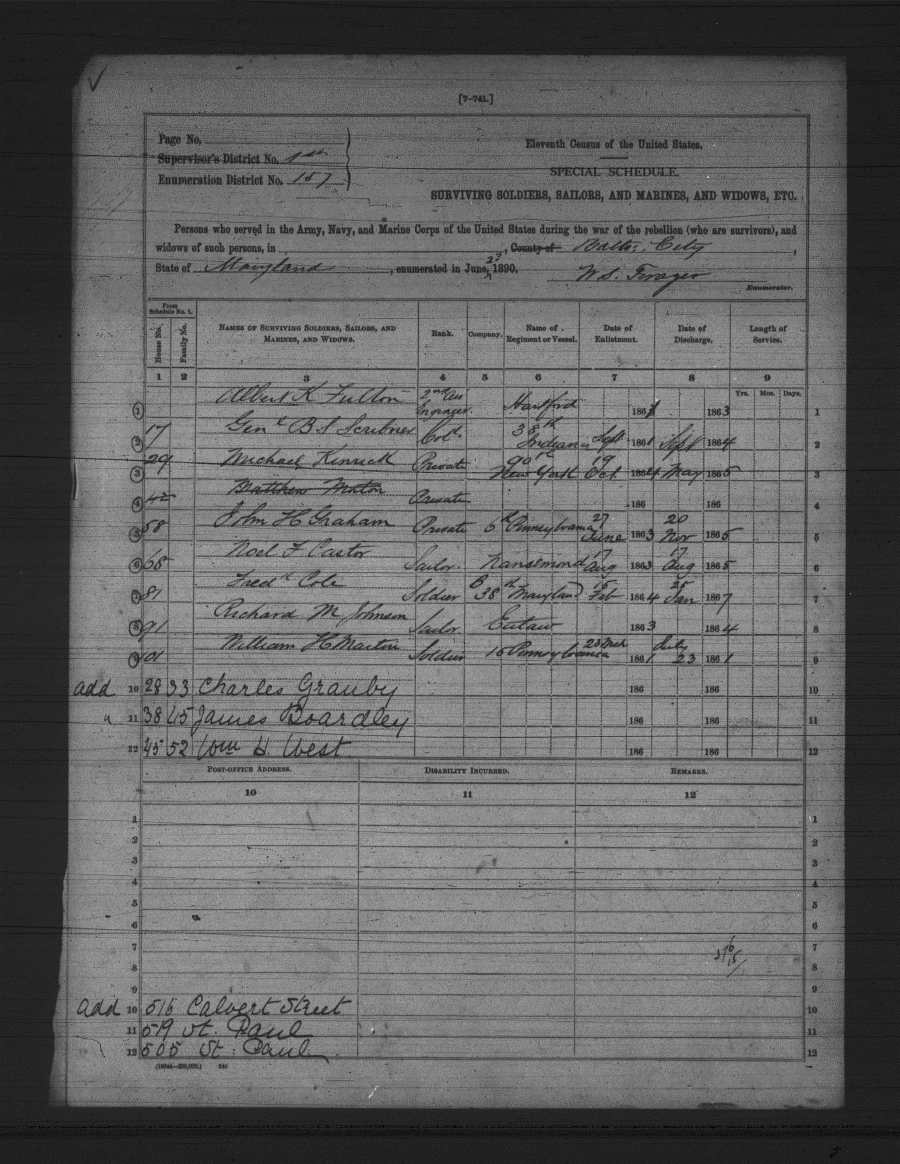 [7-741.]
Page No.
Eleventh Census of the United States.
Supervisor's District No. 1st
SPECIAL SCHEDULE.
Enumeration District No. 157
SURVIVING SOLDIERS, SAILORS, AND MARINES, AND WIDOWS, ETC.
Persons who served in the Army, Navy, and Marine Corps of the United States during the war of the rebellion (who are survivors), and
widows of such persons, in , County of Balto. City ,
State of Maryland , enumerated in June, 1890. W. S.
Enumerator.
From Schedule No. 1.
House No. Family No. NAMES OF SURVIVING SOLDIERS, SAILORS, AND MARINES, AND WIDOWS. Rank. Company. Name of Regiment or Vessel. Date of Enlistment. Date of Discharge. Length of Service.
1 2 3 4 5 6 7 8 9
Yrs. Mos. Days.
1 Albert K Fulton 2nd Engineer. Hartford 186 1863 1
2 17 Genl B S Scribner Col. 38th Indiana Sept 1861 Sept 1864 2
3 29 Michael Private 90th New York 19 Oct 1864 May 1865 3
4 42 Matthew Private 186 186 4
5 58 John H Graham Private 6th Pennsylvania 27 June 1863 20 Nov 1865 5
6 68 Noel F Castor Sailor. Nansemond 17 Aug 1863 17 Aug 1865 6
7 81 Fredk Cole Soldier B 38th Maryland 15 Feb 1864 25 Jan 1867 7
8 91 Richard M Johnson Sailor Eutaw 1863 1864 8
9 101 William H Martin Soldier 15 Pennsylvania 23 1861 July 23 1861 9
add 10 28 33 Charles Granby 186 186 10
" 11 38 45 James Boardley 186 186 11
12 45 52 Wm H West 186 186 12
POST-OFFICE ADDRESS. DISABILITY INCURRED. REMARKS.
10 11 12
1 1
2 2
3 3
4 4
5 5
6 6
7 7
8 8
9 9
add 10 516 Calvert Street 10
11 519 St. Paul 11
12 505 St. Paul 12